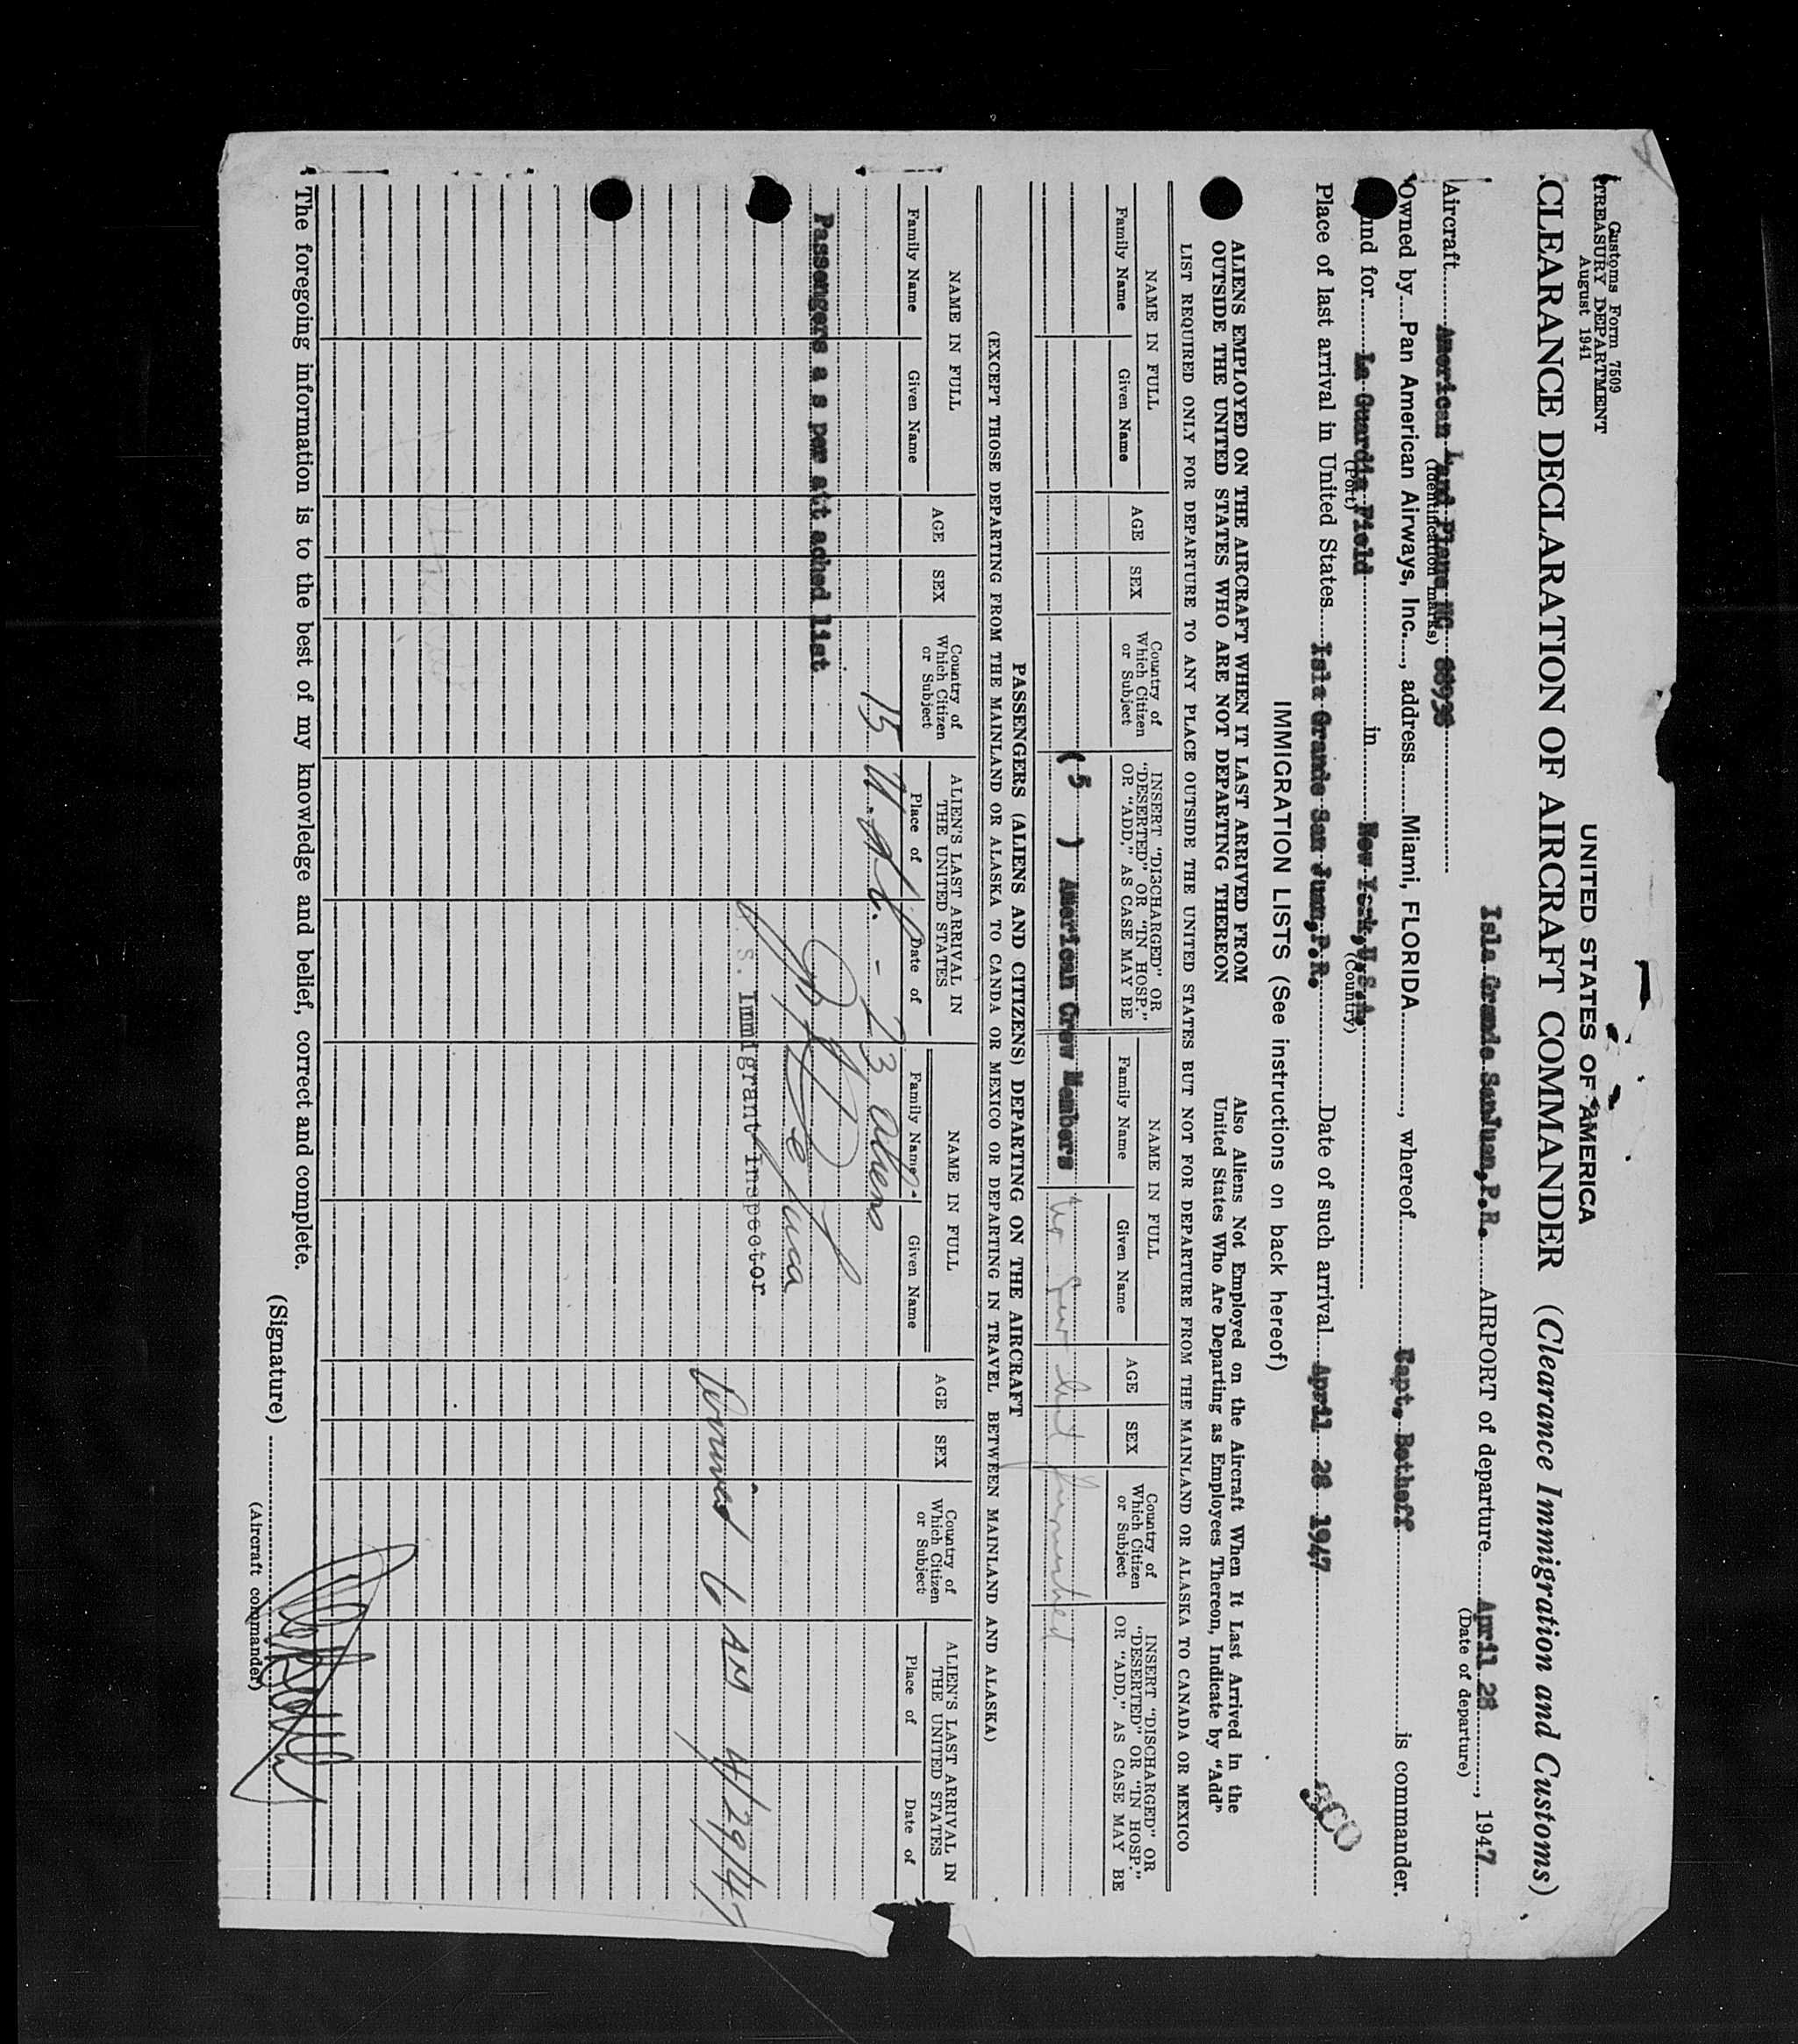 Customs Form 7509
TREASURY DEPARTMENT
August 1941
UNITED STATES OF AMERICA
CLEARANCE DECLARATION OF AIRCRAFT COMMANDER (Clearance Immigration and Customs)
Isla Grande SanJuan,P.R. AIRPORT of departure April 28, 1947
(Date of departure)
Aircraft American Land Plane NC 88938
(Identification marks)
Owned by Pan American Airways, Inc., address Miami, FLORIDA, whereof Capt. Bethoff is commander.
und for La Guardia Field in New York,U.S.A.
(Port) (Country)
Place of last arrival in United States Isla Grande San Juan,P.R. Date of such arrival April 28 1947
IMMIGRATION LISTS (See instructions on back hereof)
ALIENS EMPLOYED ON THE AIRCRAFT WHEN IT LAST ARRIVED FROM
OUTSIDE THE UNITED STATES WHO ARE NOT DEPARTING THEREON
Also Aliens Not Employed on the Aircraft When It Last Arrived in the
United States Who Are Departing as Employees Thereon, Indicate by "Add"
LIST REQUIRED ONLY FOR DEPARTURE TO ANY PLACE OUTSIDE THE UNITED STATES BUT NOT FOR DEPARTURE FROM THE MAINLAND OR ALASKA TO CANADA OR MEXICO
NAME IN FULL
Family Name Given Name
AGE
SEX
Country of
Which Citizen
or Subject
INSERT "DI3CHARGED" OR
"DESERTED" OR "IN HOSP."
OR "ADD," AS CASE MAY BE
NAME IN FULL
Family Name Given Name
AGE
SEX
Country of
Which Citizen
or Subject
INSERT "DISCHARGED" OR
"DESERTED" OR "IN HOSP."
OR "ADD," AS CASE MAY BE
( 5 ) American Crew Members
PASSENGERS (ALIENS AND CITIZENS) DEPARTING ON THE AIRCRAFT
(EXCEPT THOSE DEPARTING FROM THE MAINLAND OR ALASKA TO CANDA OR MEXICO OR DEPARTING IN TRAVEL BETWEEN MAINLAND AND ALASKA)
NAME IN FULL
Family Name Given Name
AGE
SEX
Country of
Which Citizen
or Subject
ALIEN'S LAST ARRIVAL IN
THE UNITED STATES
Place of Date of
NAME IN FULL
Family Name Given Name
AGE
SEX
Country of
Which Citizen
or Subject
ALIEN'S LAST ARRIVAL IN
THE UNITED STATES
Place of Date of
Aliens
Passengers a s per att ached list
S. Immigrant Inspector
Arrived 6 AM 4/29/47
The foregoing information is to the best of my knowledge and belief, correct and complete.
(Signature)
(Aircraft commander)